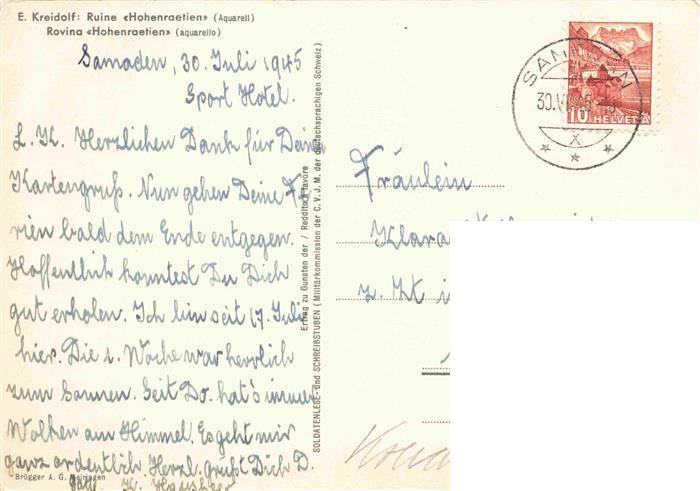 E. Kreidolf: Ruine «Hohenraetien» (Aquarell)
Rovina «Hohenraetien» (aquarello)
Samaden, 30. Juli 1945
Sport Hotel.
L. K. Herzlichen Dank für Deine
Kartengruß. Nun gehen Deine Fe
rien bald dem Ende entgegen.
Hoffentlich konntest Du Dich
gut erholen. Ich bin seit 17. Juli
hier. Die 1. Woche war herrlich
zum Sonnen. Seit Do. hat's immer
Wolken am Himmel. Es geht mir
ganz ordentlich. Herzl. grüßt Dich D.
Brügger A. G. Meiringen
Ertrag zu Gunsten der / Reddito a favore
SOLDATENLESE- und SCHREIBSTUBEN (Militärkommission der C. V. J. M. der deutschsprachigen Schweiz)
10 HELVETIA
Fräulein
Klara
z. Zt i